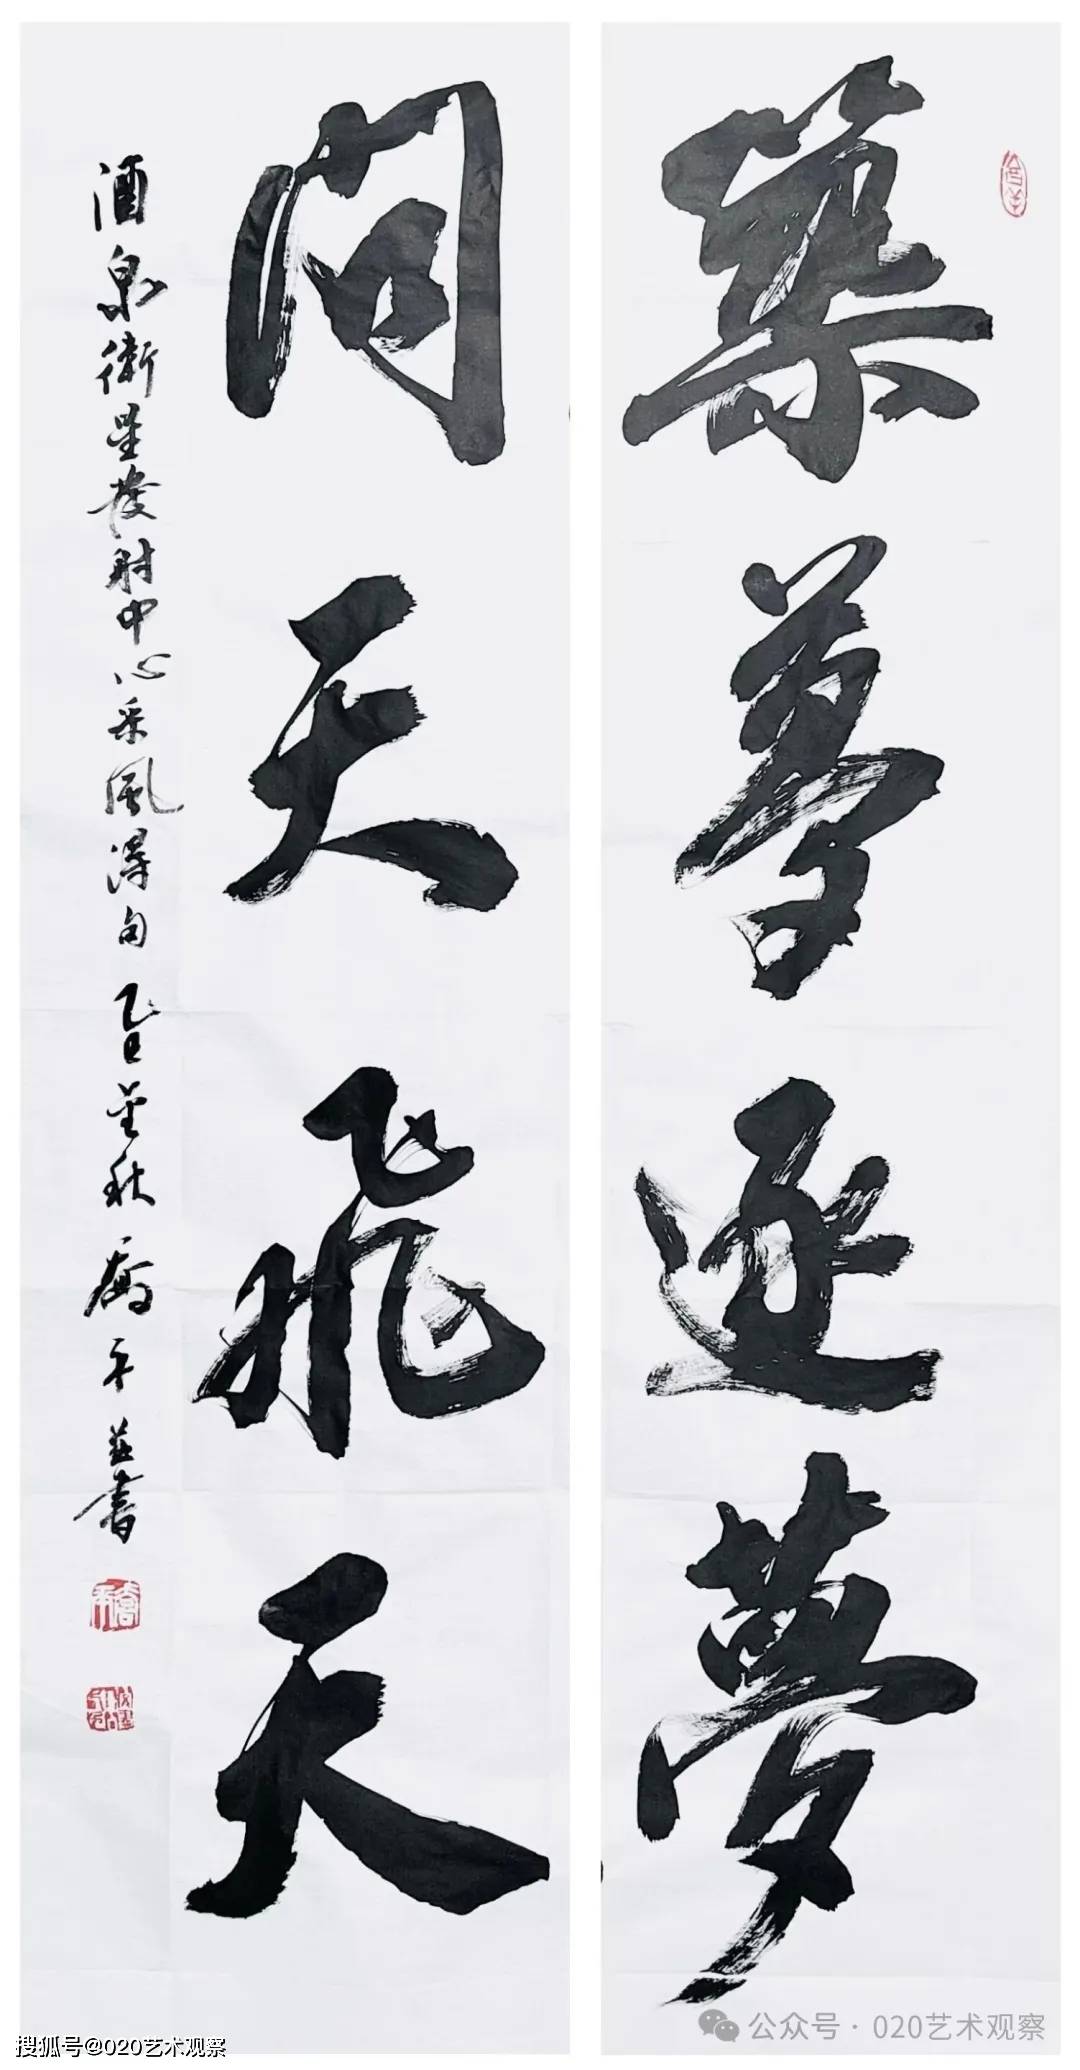 築夢逐夢
問天飛天
酒泉衛星發射中心采風得句 乙巳金秋 喬平並書
公众号·020艺术观察
搜狐号@020艺术观察